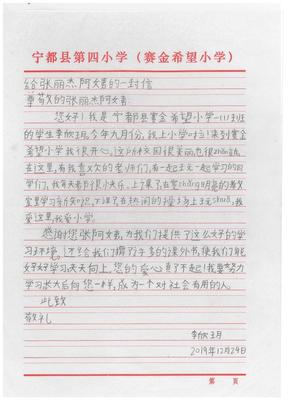 宁都县第四小学（赛金希望小学）
给张丽杰阿姨的一封信
尊敬的张丽杰阿姨：
您好！我是宁都县赛金希望小学一(1)班的
的学生李欣玥，今年九月1份，我上小学啦！来到赛金
希望小学我很开心，这所校园很美丽，也很
在这里，有慈爱的老师们，有一起玩一起学习的同
学们，我每天都很快乐。上了课，在宽chǎng明亮的教
室里学习有你知识，下课了，在热闹的操场上玩shuǎ，我
爱这里，我爱小学。
感谢您张阿姨，为我们提供了这么好的学
习环境，还给我们捐好多的课外书，使我们能
好好学习，天天向上。您的爱心真了不起！我要努力
学习，长大后向您一样，成为一个对社会有用的人。
此致
敬礼
李欣玥
2019年12月29日
第 页